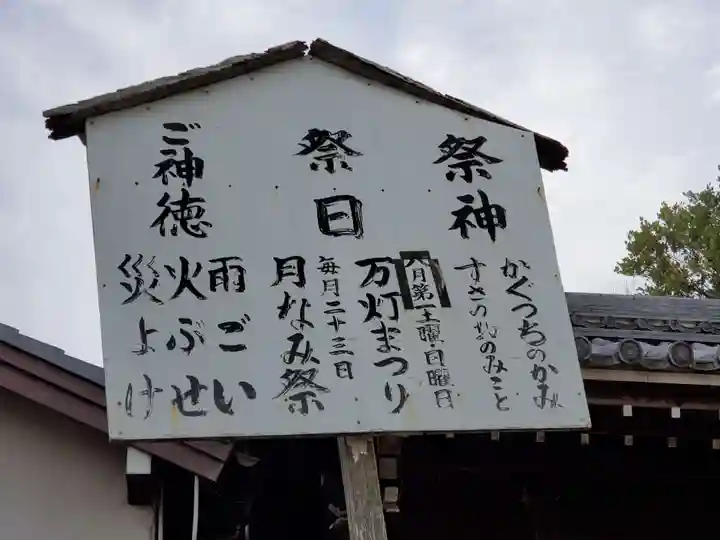 祭神
かぐつちのかみ
すさのおのみこと
祭日
八月第一土曜日曜日
万灯まつり
毎月二十三日
月なみ祭
ご神徳
雨ごい
火ぶせ
災よけ